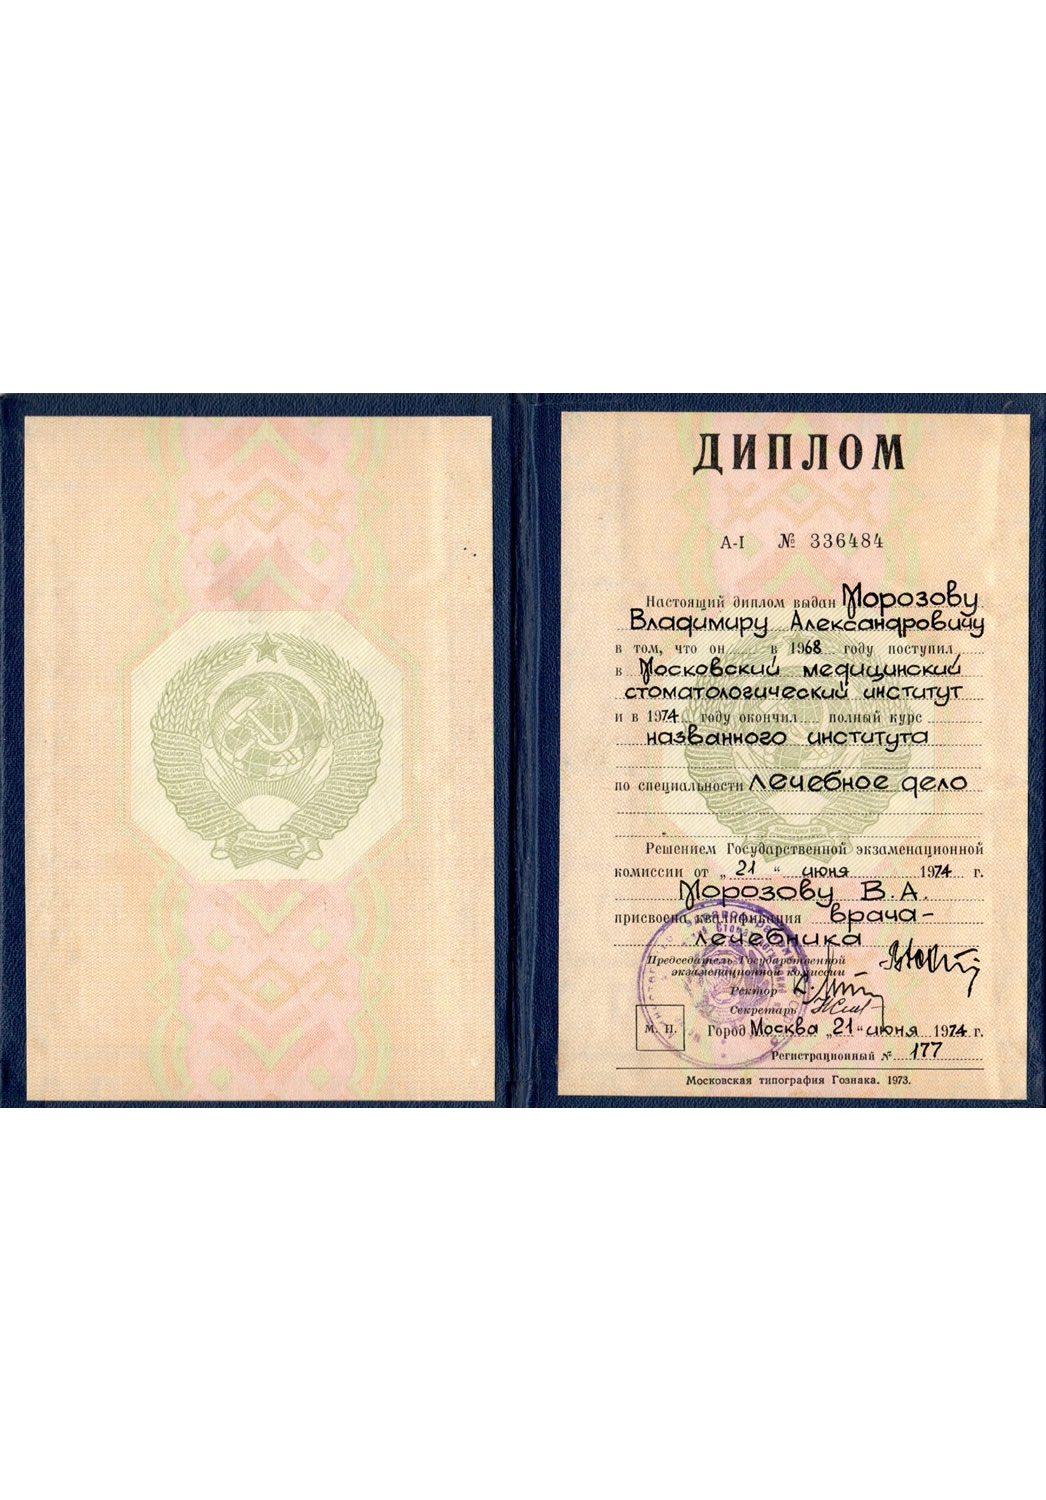 ДИПЛОМ
А-I № 336484
Настоящий диплом выдан Морозову
Владимиру Александровичу
в том, что он в 1968 году поступил
в Московский медицинский
стоматологический институт
и в 1974 году окончил полный курс
названного института
по специальности лечебное дело
Решением Государственной экзаменационной
комиссии от „21“ июня 1974 г.
Морозову В.А.
присвоена квалификация врача-
лечебника
Председатель Государственной
экзаменационной комиссии
Ректор
Секретарь
М. П. Город Москва „21“ июня 1974 г.
Регистрационный № 177
Московская типография Гознака. 1973.